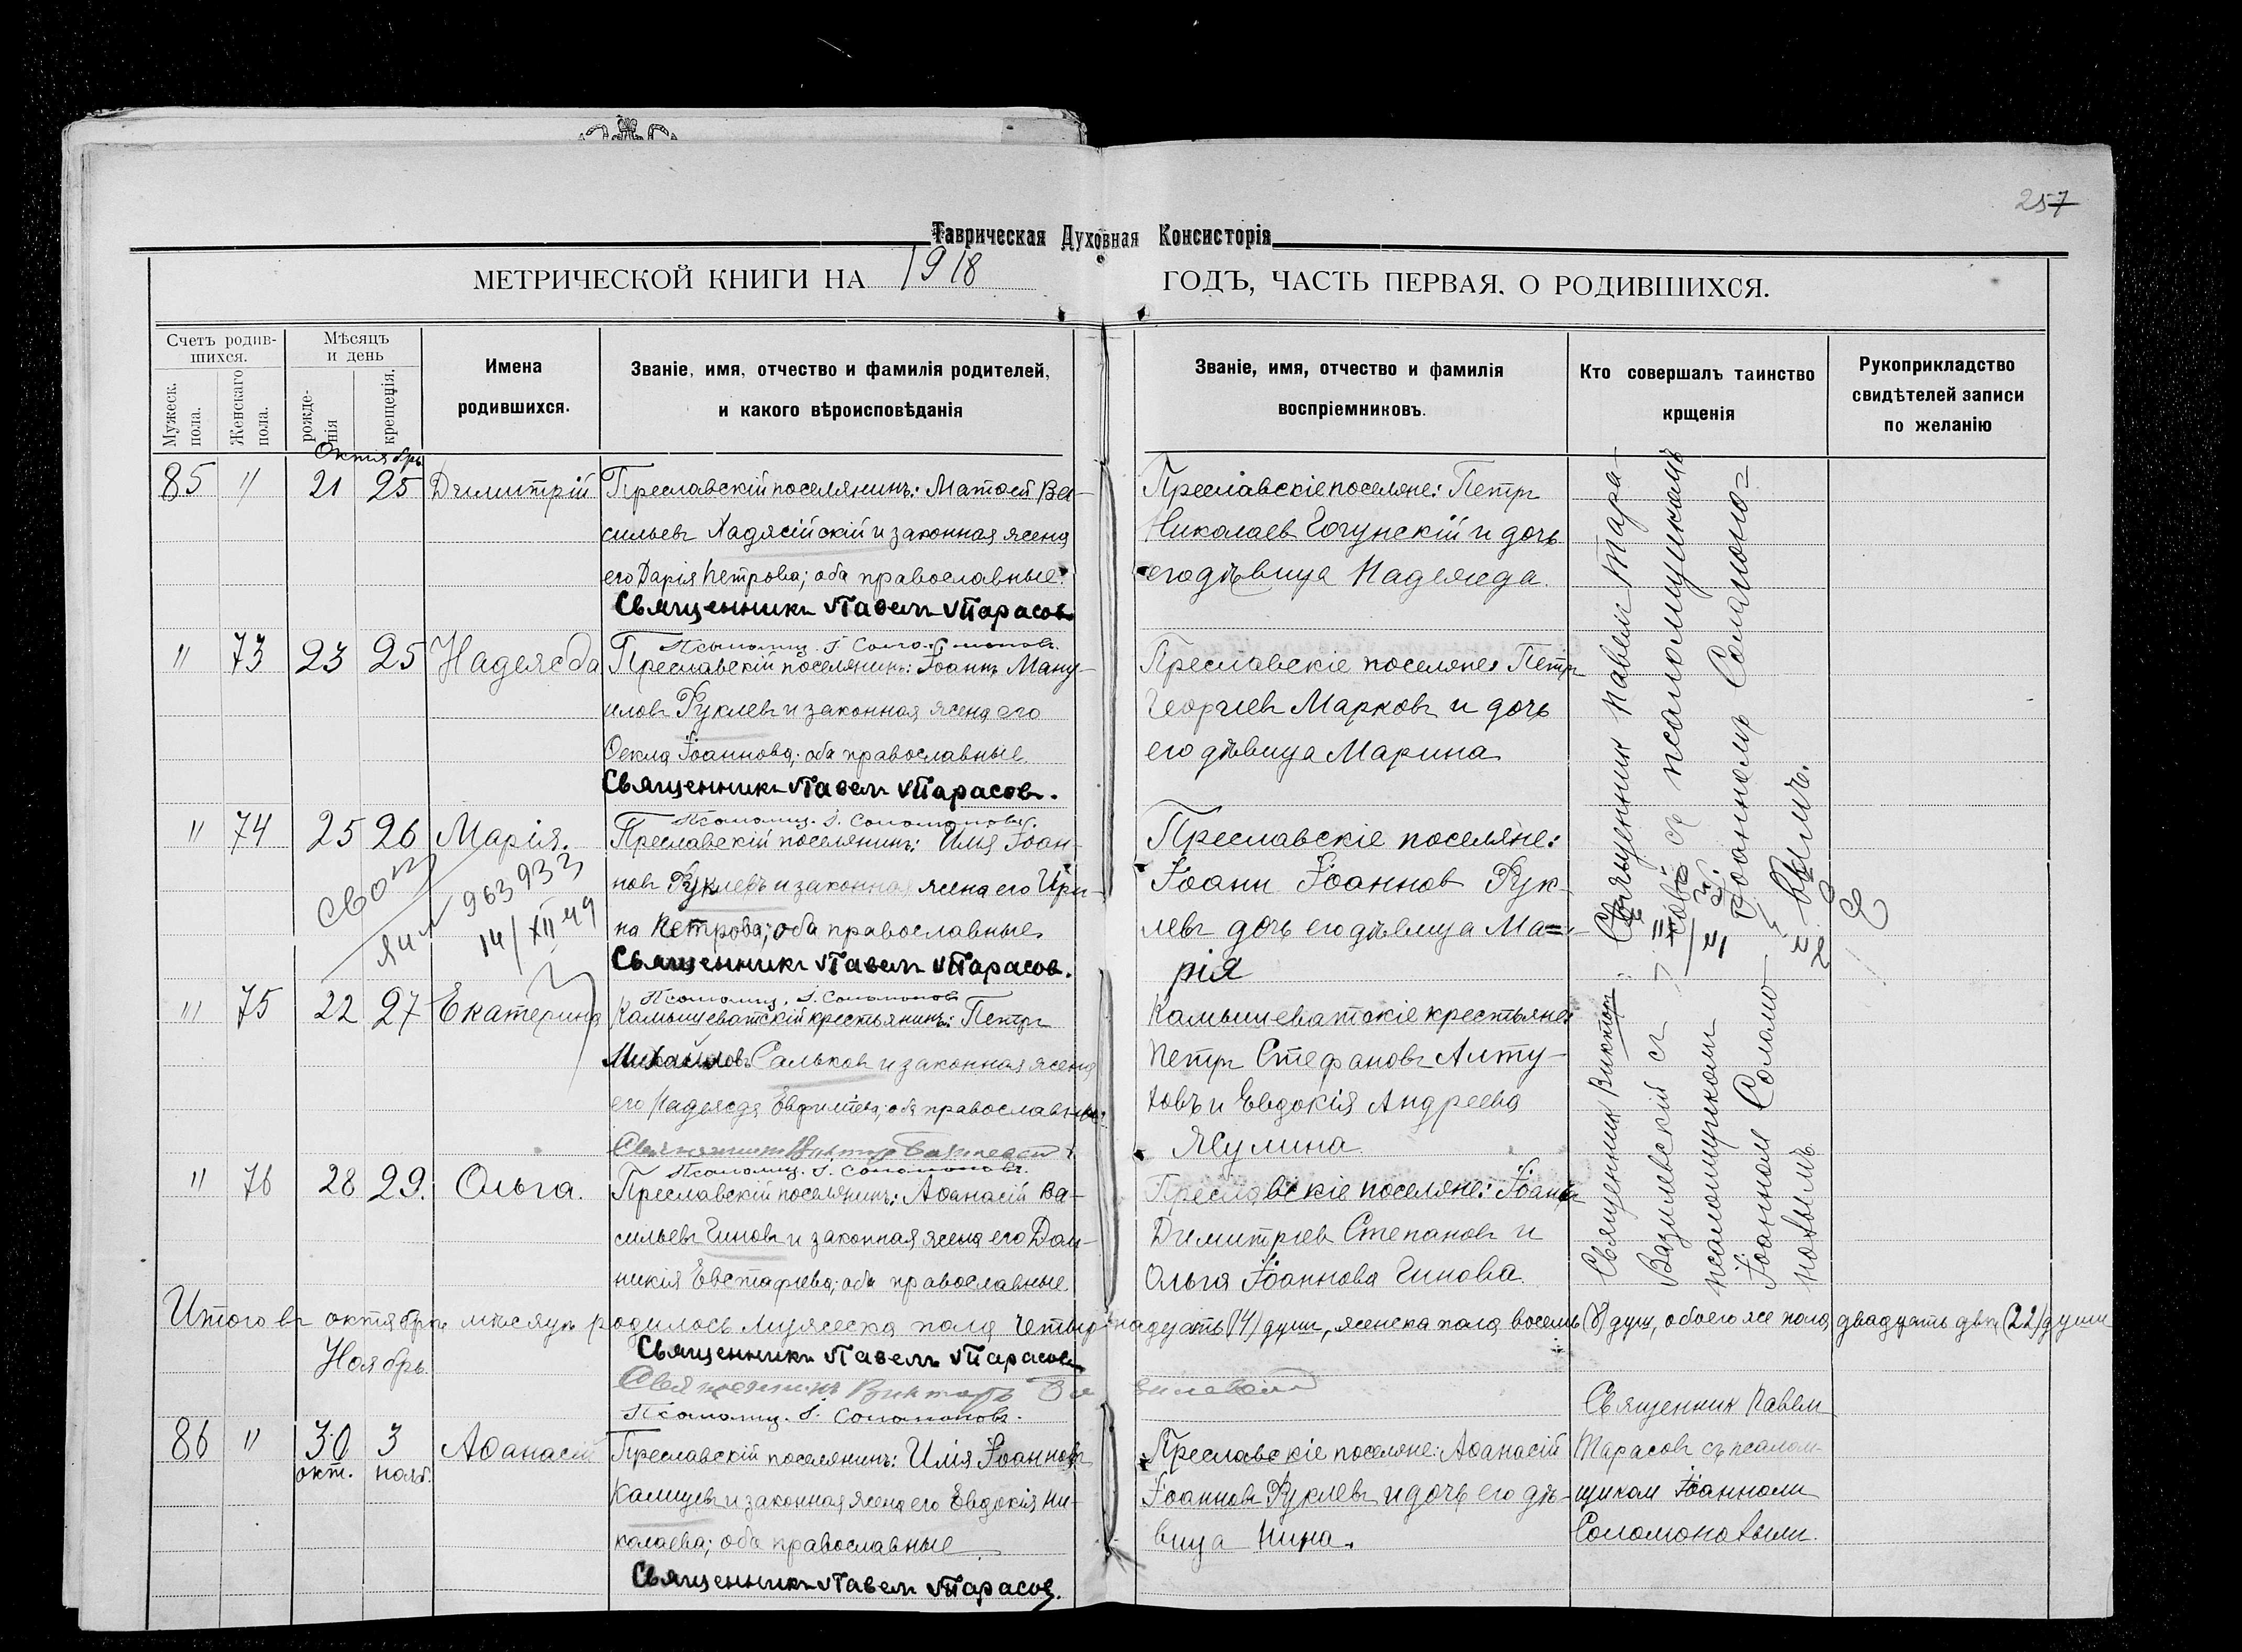 257
Таврическая Духовная Консисторія
МЕТРИЧЕСКОЙ КНИГИ НА 1918 ГОДЪ, ЧАСТЬ ПЕРВАЯ. О РОДИВШИХСЯ.
Счетъ родив-
шихся.
Мужеск.
пола.
Женскаго
пола.
Мѣсяцъ
и день
рожде-
нія
крещенія.
Имена
родившихся.
Званіе, имя, отчество и фамилія родителей,
и какого вѣроисповѣданія
Званіе, имя, отчество и фамилія
воспріемниковъ.
Кто совершалъ таинство
крщенія
Рукоприкладство
свидѣтелей записи
по желанію
Октябрь
85 " 21 25 Димитрій
Преславскій поселянинъ: Матѳей Ва-
сильевъ Хаджійскій и законная жена
его Дарія Петрова; оба православные.
Священникъ Павелъ Тарасов
Псаломщ. І. Соломоновъ.
Преславскіе поселяне: Петръ
Николаев Гогунскій и дочь
его дѣвица Надежда.
Священник Павел Тара-
совъ съ псаломщикомъ
Іоанномъ Соломоно=
вымъ.
" 73 23 25 Надежда
Преславскій поселянинъ: Іоаннъ Ману-
иловъ Руклевъ и законная жена его
Ѳекла Іоаннова; оба православные
Священникъ Павелъ Тарасовъ.
Псаломщ. І. Соломоновъ.
Преславскіе поселяне: Петръ
Георгиевъ Марковъ и дочь
его дѣвица Марина
" 74 25 26 Марія.
963933
14/XII 49
Преславскій поселянинъ: Илія Іоан-
новъ Руклевъ и законная жена его Ири-
на Петрова; оба православные
Священникъ Павелъ Тарасов.
Псаломщ. І. Соломоновъ
Преславскіе поселяне:
Іоанн Іоаннов Рук-
левъ дочь его дѣвица Ма=
рія
" 75 22 27 Екатерина
Камышеватскій крестьянинъ: Петръ
Михайловъ Сальков и законная жена
его Надежда Евфиміева; оба православные.
Псаломщ. І. Соломоновъ.
Камышеватскіе крестьяне:
Петръ Стефановъ Алту-
ховъ и Евдокія Андреева
Жулина
Священник Виктор
Базилевскій съ
псаломщикомъ
Іоанном Соломо-
новымъ.
" 76 28 29. Ольга.
Преславскій поселянинъ: Аѳанасій Ва-
сильевъ Чиновъ и законная жена его Дом-
никія Евстафиева; оба православные
Преславскіе поселяне: Іоаннъ
Димитріев Степановъ и
Ольга Іоаннова Чинова
Итого въ октябрѣ мѣсяцѣ родилось мужеска пола четырнадцать (14) душ, женска пола восемь (8) душ, обоего же пола двадцать двѣ (22) души
Священникъ Павелъ Тарасов
Священникъ Викторъ Базилевскій
Псаломщ. І. Соломоновъ.
Ноябрь
86 " 30 окт. 3 нояб. Аѳанасій
Преславскій поселянинъ: Илія Іоанновъ
Калицевъ и законная жена его Евдокія Ни-
колаева; оба православные
Священникъ Павелъ Тарасов.
Преславскіе поселяне: Аѳанасій
Іоанновъ Руклевъ и дочь его дѣ-
вица Нина.
Священник Павелъ
Тарасовъ съ псалом-
щиком Іоанномъ
Соломоновымъ.